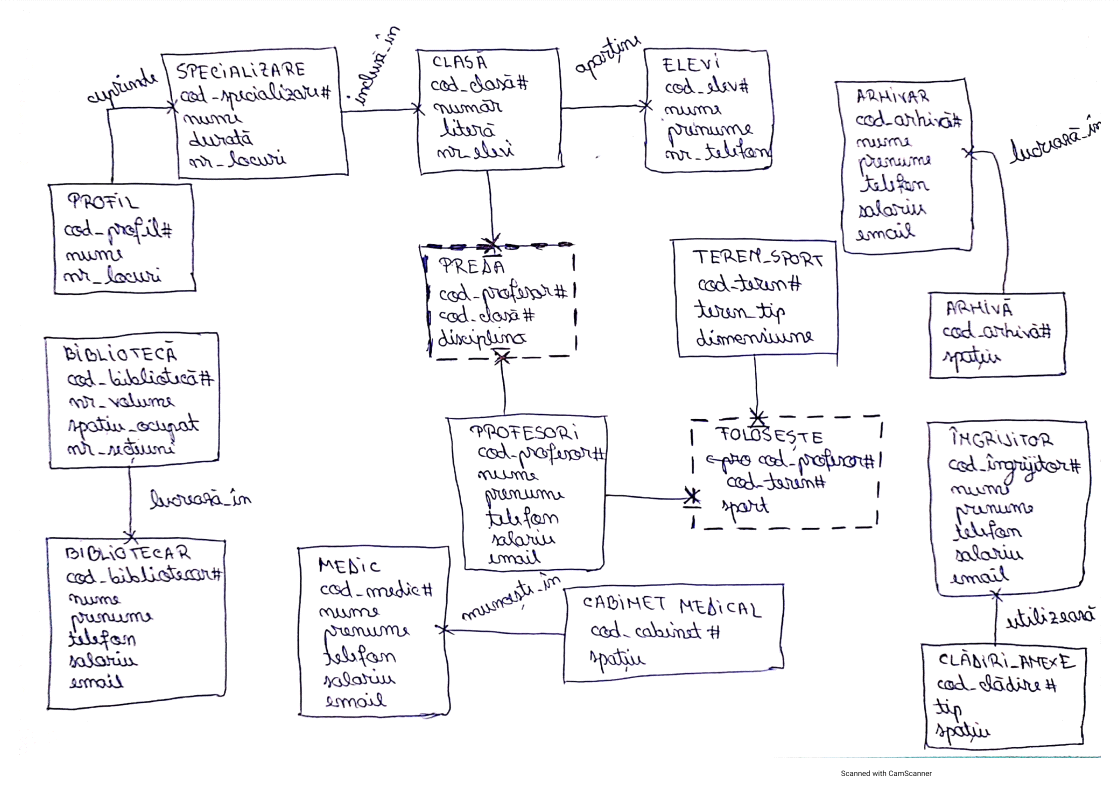 cuprinde
SPECIALIZARE
cod_specializare#
nume
durată
nr_locuri
includă_în
CLASĂ
cod_clasă#
număr
literă
nr_elevi
aparține
ELEVI
cod_elev#
nume
prenume
nr_telefon
ARHIVAR
cod_arhivă#
nume
prenume
telefon
salariu
email
lucrează_în
PROFIL
cod_profil#
nume
nr_locuri
PREDA
cod_profesor#
cod_clasă#
disciplina
TEREN_SPORT
cod_teren#
teren_tip
dimensiune
ARHIVĂ
cod_arhivă#
spațiu
BIBLIOTECĂ
cod_bibliotecă#
nr_volume
spatiu_ocupat
nr_secțiuni
lucrează_în
PROFESORI
cod_profesor#
nume
prenume
telefon
salariu
email
FOLOSEȘTE
cod_profesor#
cod_teren#
sport
ÎNGRIJITOR
cod_îngrijitor#
nume
prenume
telefon
salariu
email
BIBLIOTECAR
cod_bibliotecar#
nume
prenume
telefon
salariu
email
MEDIC
cod_medic#
nume
prenume
telefon
salariu
email
CABINET MEDICAL
cod_cabinet #
spațiu
utilizează
CLĂDIRI_ANEXE
cod_clădire#
tip
spațiu
Scanned with CamScanner